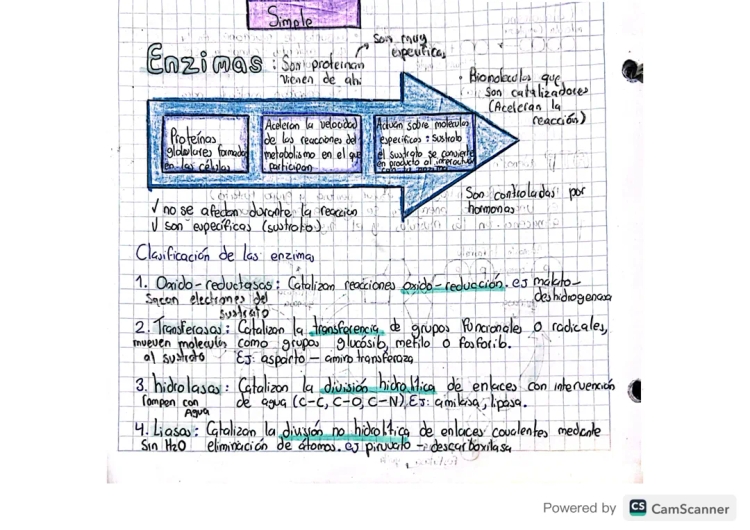 Simple
Son muy
específicas
Enzimas : Son proteínas
vienen de ahí
• Biomoléculas que
son catalizadores
(Aceleran la
reacción)
Proteínas
globulares formadas
en las células
Aceleran la velocidad
de las reacciones del
metabolismo en el que
participan
Actúan sobre moléculas
específicas : sustrato
el sustrato se convierte
en producto al
Son controladas por
hormonas
√ no se afectan durante la reacción
√ son específicas (sustrato)
Clasificación de las enzimas
1. Oxido-reductasas: Catalizan reacciones oxido-reducción. ej malato-
Sacan electrones del deshidrogenasa
sustrato
2. Transferasas: Catalizan la transferencia de grupos funcionales o radicales,
mueven moléculas como grupos glucosib, metilo o fosforib.
al sustrato EJ: asparto - amino transferaza
3. hidrolasas: Catalizan la división hidrolítica de enlaces con intervención
rompen con de agua (C-C, C-O, C-N), EJ: amilasa, lipasa.
Agua
4. Liasas: Catalizan la división no hidrolítica de enlaces covalentes mediante
Sin H2O eliminación de átomos. ej piruvato - descarboxilasa
Powered by CS CamScanner